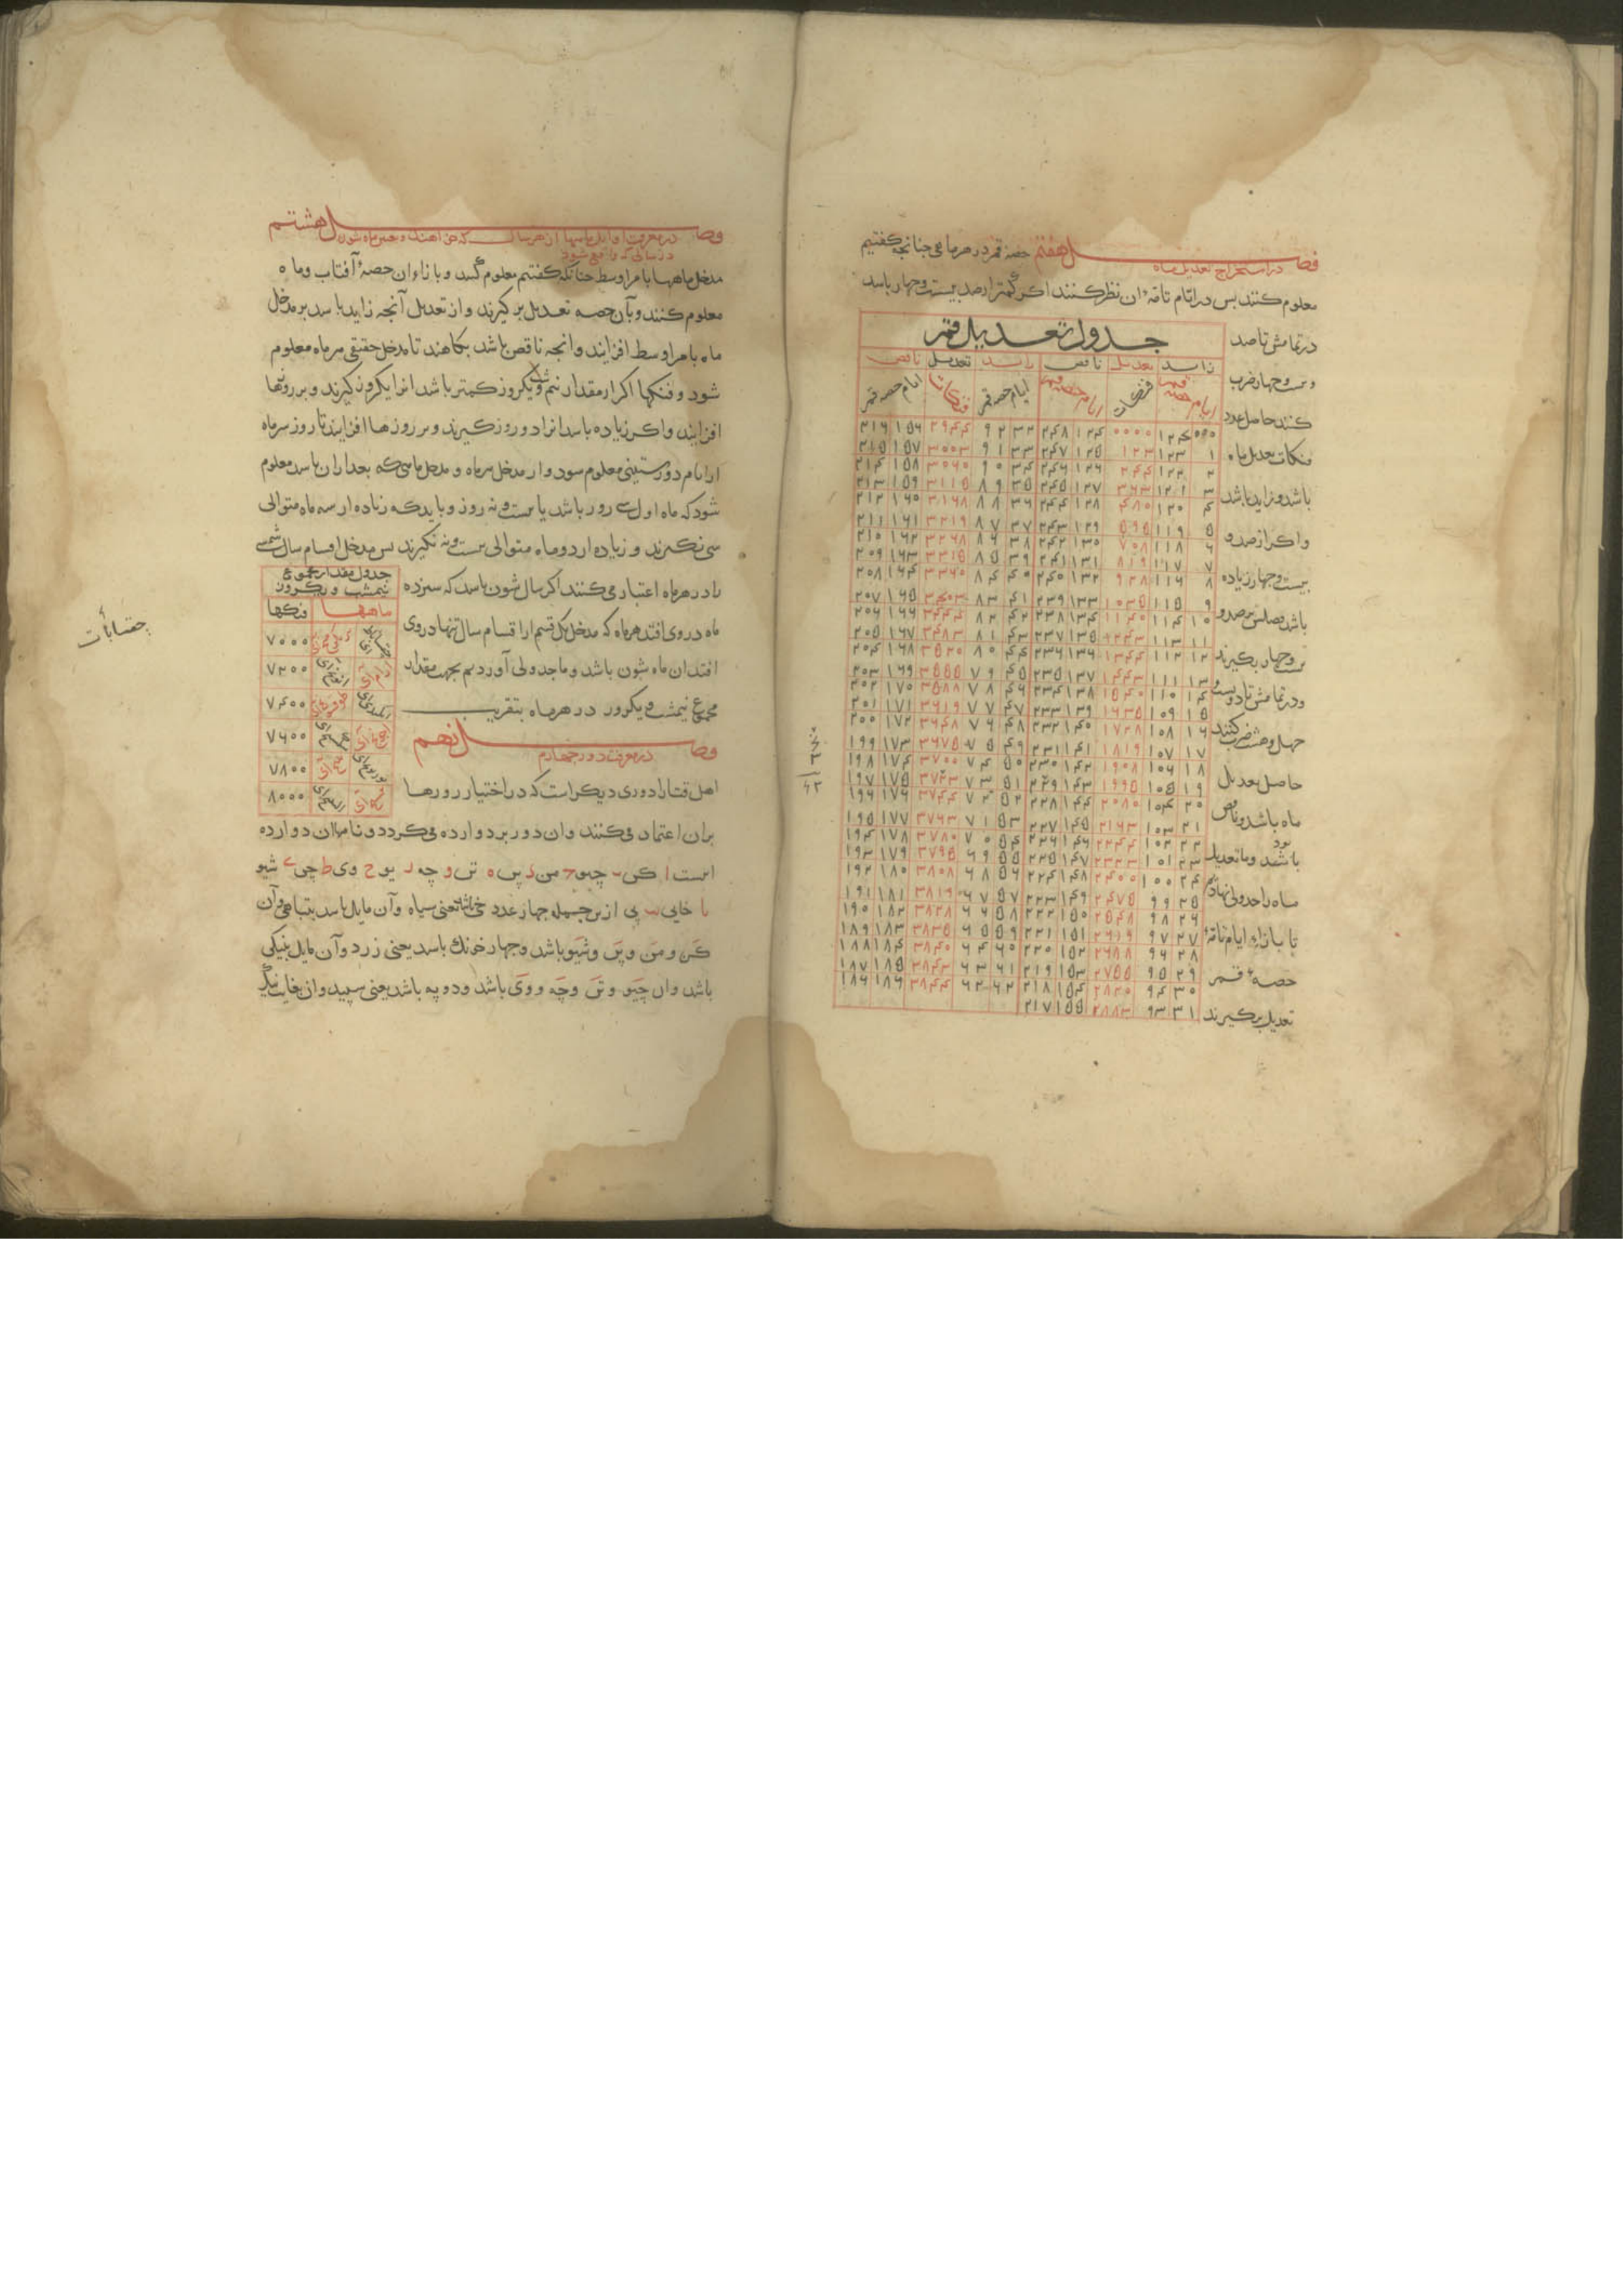 فصل هفتم حصهٔ قمر در هر ماهی چنانچه کفتیم
در استخراج تعدیل ماه
معلوم کنند بس در ایام تامهٔ ان نظر کنند اکر کمتر از صد بیست وجهار باسد
در تمامش تا صد
وبست وجهار ضرب
کنند حاصل عدد
فنکات تعدیل ماه
باشد وزاید باشد
واکر از صد و
بیست وجهار زیاده
باشد صد و
بست وجهار بکیرند
ودر تمامش تا دویست و
جهل وهشت ضرب کنند
حاصل تعدیل
ماه باشد وناقص
بود
باشد وما تعدیل
ماه را جدولی نهادیم
تا بازاء ایام تامهٔ
حصهٔ قمر
تعدیل برکیرند
جدول تعدیل قمر
زاید تعدیل ناقص زاید تعدیل ناقص
ایام حصه قمر فنکات ایام حصه قمر ایام حصه قمر فنکات ایام حصه قمر
۰۰۰ ۱۲۴ ۰۰۰۰ ۱۲۴ ۲۴۸ ۳۲ ۹۲ ۲۹۴۴ ۱۵۶ ۲۱۶
۱ ۱۲۳ ۱۲۳ ۱۲۵ ۲۴۷ ۳۳ ۹۱ ۳۰۰۳ ۱۵۷ ۲۱۵
۲ ۱۲۲ ۲۴۴ ۱۲۶ ۲۴۶ ۳۴ ۹۰ ۳۰۶۰ ۱۵۸ ۲۱۴
۳ ۱۲۱ ۳۶۳ ۱۲۷ ۲۴۵ ۳۵ ۸۹ ۳۱۱۵ ۱۵۹ ۲۱۳
۴ ۱۲۰ ۴۸۰ ۱۲۸ ۲۴۴ ۳۶ ۸۸ ۳۱۶۸ ۱۶۰ ۲۱۲
۵ ۱۱۹ ۵۹۵ ۱۲۹ ۲۴۳ ۳۷ ۸۷ ۳۲۱۹ ۱۶۱ ۲۱۱
۶ ۱۱۸ ۷۰۸ ۱۳۰ ۲۴۲ ۳۸ ۸۶ ۳۲۶۸ ۱۶۲ ۲۱۰
۷ ۱۱۷ ۸۱۹ ۱۳۱ ۲۴۱ ۳۹ ۸۵ ۳۳۱۵ ۱۶۳ ۲۰۹
۸ ۱۱۶ ۹۲۸ ۱۳۲ ۲۴۰ ۴۰ ۸۴ ۳۳۶۰ ۱۶۴ ۲۰۸
۹ ۱۱۵ ۱۰۳۵ ۱۳۳ ۲۳۹ ۴۱ ۸۳ ۳۴۰۳ ۱۶۵ ۲۰۷
۱۰ ۱۱۴ ۱۱۴۰ ۱۳۴ ۲۳۸ ۴۲ ۸۲ ۳۴۴۴ ۱۶۶ ۲۰۶
۱۱ ۱۱۳ ۱۲۴۳ ۱۳۵ ۲۳۷ ۴۳ ۸۱ ۳۴۸۳ ۱۶۷ ۲۰۵
۱۲ ۱۱۲ ۱۳۴۴ ۱۳۶ ۲۳۶ ۴۴ ۸۰ ۳۵۲۰ ۱۶۸ ۲۰۴
۱۳ ۱۱۱ ۱۴۴۳ ۱۳۷ ۲۳۵ ۴۵ ۷۹ ۳۵۵۵ ۱۶۹ ۲۰۳
۱۴ ۱۱۰ ۱۵۴۰ ۱۳۸ ۲۳۴ ۴۶ ۷۸ ۳۵۸۸ ۱۷۰ ۲۰۲
۱۵ ۱۰۹ ۱۶۳۵ ۱۳۹ ۲۳۳ ۴۷ ۷۷ ۳۶۱۹ ۱۷۱ ۲۰۱
۱۶ ۱۰۸ ۱۷۲۸ ۱۴۰ ۲۳۲ ۴۸ ۷۶ ۳۶۴۸ ۱۷۲ ۲۰۰
۱۷ ۱۰۷ ۱۸۱۹ ۱۴۱ ۲۳۱ ۴۹ ۷۵ ۳۶۷۵ ۱۷۳ ۱۹۹
۱۸ ۱۰۶ ۱۹۰۸ ۱۴۲ ۲۳۰ ۵۰ ۷۴ ۳۷۰۰ ۱۷۴ ۱۹۸
۱۹ ۱۰۵ ۱۹۹۵ ۱۴۳ ۲۲۹ ۵۱ ۷۳ ۳۷۲۳ ۱۷۵ ۱۹۷
۲۰ ۱۰۴ ۲۰۸۰ ۱۴۴ ۲۲۸ ۵۲ ۷۲ ۳۷۴۴ ۱۷۶ ۱۹۶
۲۱ ۱۰۳ ۲۱۶۳ ۱۴۵ ۲۲۷ ۵۳ ۷۱ ۳۷۶۳ ۱۷۷ ۱۹۵
۲۲ ۱۰۲ ۲۲۴۴ ۱۴۶ ۲۲۶ ۵۴ ۷۰ ۳۷۸۰ ۱۷۸ ۱۹۴
۲۳ ۱۰۱ ۲۳۲۳ ۱۴۷ ۲۲۵ ۵۵ ۶۹ ۳۷۹۵ ۱۷۹ ۱۹۳
۲۴ ۱۰۰ ۲۴۰۰ ۱۴۸ ۲۲۴ ۵۶ ۶۸ ۳۸۰۸ ۱۸۰ ۱۹۲
۲۵ ۹۹ ۲۴۷۵ ۱۴۹ ۲۲۳ ۵۷ ۶۷ ۳۸۱۹ ۱۸۱ ۱۹۱
۲۶ ۹۸ ۲۵۴۸ ۱۵۰ ۲۲۲ ۵۸ ۶۶ ۳۸۲۸ ۱۸۲ ۱۹۰
۲۷ ۹۷ ۲۶۱۹ ۱۵۱ ۲۲۱ ۵۹ ۶۵ ۳۸۳۵ ۱۸۳ ۱۸۹
۲۸ ۹۶ ۲۶۸۸ ۱۵۲ ۲۲۰ ۶۰ ۶۴ ۳۸۴۰ ۱۸۴ ۱۸۸
۲۹ ۹۵ ۲۷۵۵ ۱۵۳ ۲۱۹ ۶۱ ۶۳ ۳۸۴۳ ۱۸۵ ۱۸۷
۳۰ ۹۴ ۲۸۲۰ ۱۵۴ ۲۱۸ ۶۲ ۶۲ ۳۸۴۴ ۱۸۶ ۱۸۶
۳۱ ۹۳ ۲۸۸۳ ۱۵۵ ۲۱۷
فصل هشتم
در معرفت اوایل ماهها از هر سال که خواهند و تعیین ماه شون
در سالی که واقع شود
مدخل ماهها بامر اوسط چنانکه کفتیم معلوم کنند وبازاء ان حصهٔ آفتاب وماه
معلوم کنند وبآن حصه تعدیل برکیرند واز تعدیل آنچه زاید باسد بر مدخل
ماه بامر اوسط افزایند وانچه ناقص باشد بکاهند تا مدخل حقیقی سر ماه معلوم
شود وفنکها اکر از مقدار نیم شب ویکروز کمتر باشد انرا یکروز کیرند وبر روزها
افزایند واکر زیاده باسد انرا دو روز کیرند وبر روزها افزایند تا روز سر ماه
از ایام دور ستینی معلوم سود واز مدخل سر ماه ومدخل ماهی که بعد از ان باسد معلوم
شود که ماه اول سی روز باشد یا بیست ونه روز وباید که زیاده از سه ماه متوالی
سی نکیرند وزیاده از دو ماه متوالی بیست ونه نکیرند بس مدخل اقسام سال شمسی
را در هر ماه اعتبار می کنند اکر سال شون باسد که سیزده
ماه در وی افتد هر ماه که مدخل یک قسم از اقسام سال تنها در وی
افتد ان ماه شون باشد وما جدولی آوردیم بجهت مقدار
مجموع نیمشب ویکروز در هر ماه بتقریب
جدول مقدار مجموع
نیمشب ویکروز
ماهها فنکها
۷۰۰۰
۷۲۰۰
۷۴۰۰
۷۶۰۰
۷۸۰۰
۸۰۰۰
فصل نهم
در معرفت دور چهارم
اهل ختا را دوری دیکر است که در اختیار روزها
بران اعتماد می کنند وان دور بر دوازده می کردد ونامهاان دوازده
اینست ا کن ب چیو ج من د پن ه تن و چه ز یو ح وی ط چی ی شیو
یا خایی یب پی از ین جمله چهار عدد یعنی سیاه وآن مایل باسد بتباهی وآن
کن ومن وپن وشیو باشد وچهار خونك باسد یعنی زرد وآن مایل بنیکی
باشد وان چیو وتن وچه ووی باشد ودو په باشد یعنی سپید وان بغایت نیک